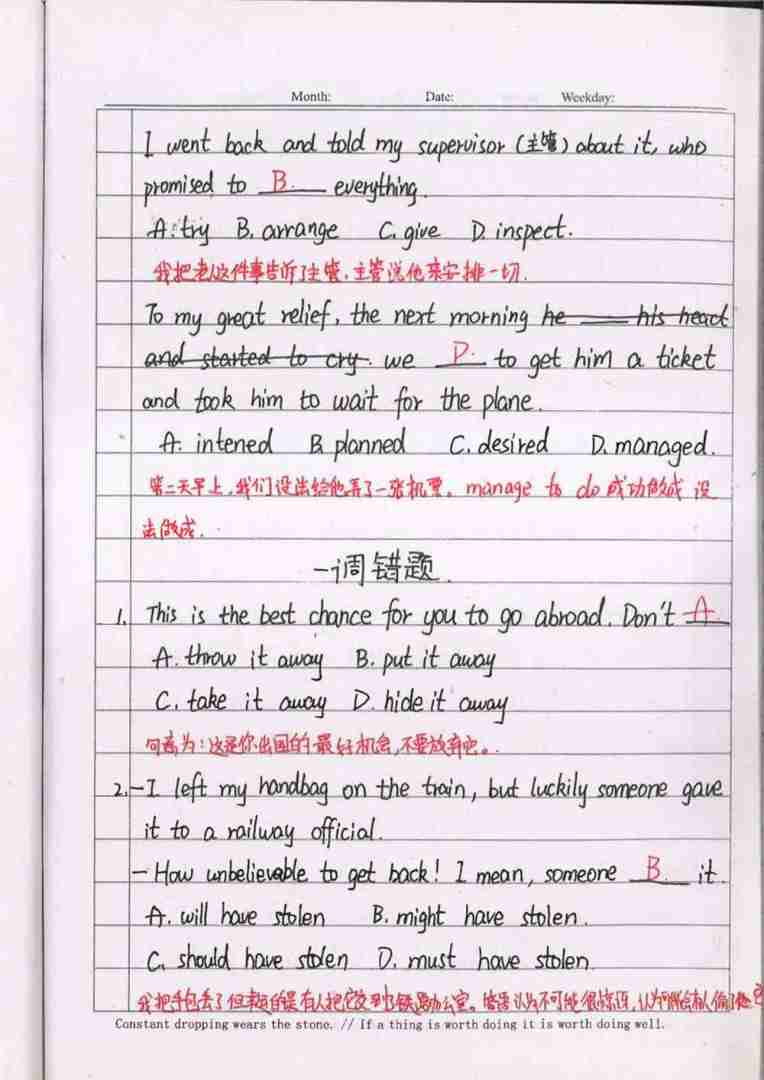 Month: Date: Weekday:
I went back and told my supervisor (主管) about it, who
promised to B. everything.
A. try B. arrange C. give D. inspect.
我把老人这件事告诉了主管,主管说他来安排一切.
To my great relief, the next morning he ___ his heart
and started to cry. we D. to get him a ticket
and took him to wait for the plane.
A. intened B. planned C. desired D. managed.
第二天早上,我们设法给他弄了一张机票。manage to do 成功做成 设
法做成.
一调错题.
1. This is the best chance for you to go abroad. Don't A
A. throw it away B. put it away
C. take it away D. hide it away
句意为:这是你出国的最好机会,不要放弃它。
2. -I left my handbag on the train, but luckily someone gave
it to a railway official.
-How unbelievable to get back! I mean, someone B. it.
A. will have stolen B. might have stolen.
C. should have stolen D. must have stolen.
我把手包丢了但幸运的是有人把它交到了铁路办公室。 认为不可能很惊讶,认为可能会有人偷了它
Constant dropping wears the stone. // If a thing is worth doing it is worth doing well.